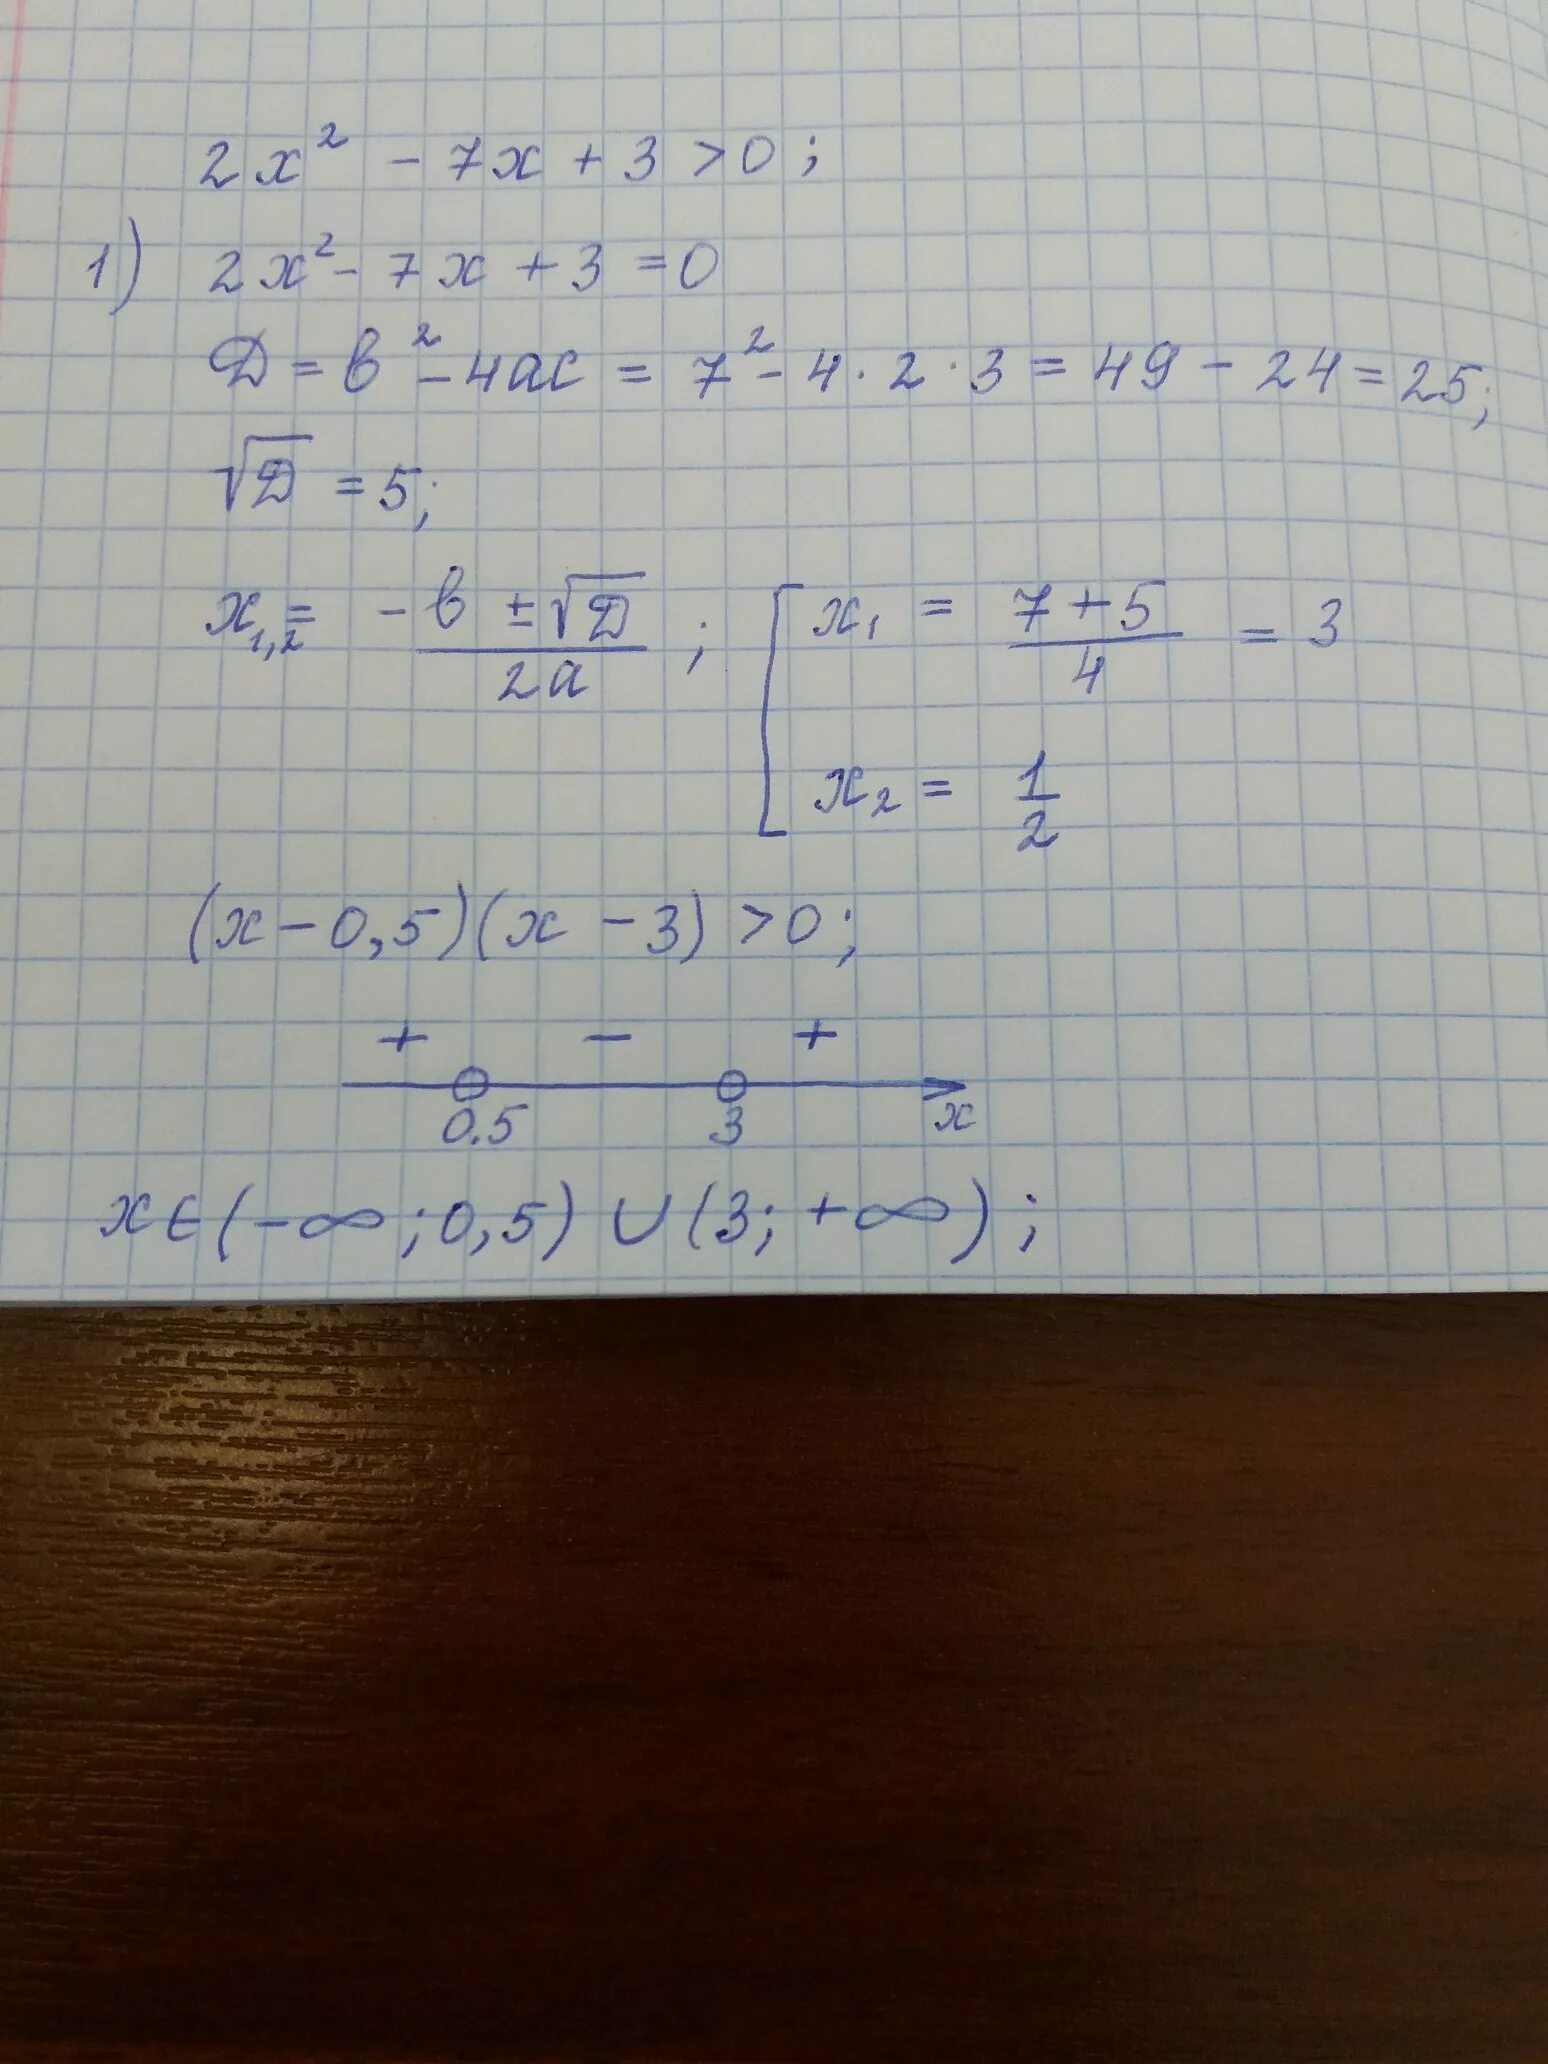 2x² - 7x + 3 > 0;
1) 2x² - 7x + 3 = 0
D = b² - 4ac = 7² - 4 · 2 · 3 = 49 - 24 = 25;
√D = 5;
x₁,₂ = (-b ± √D)/(2a); [ x₁ = (7 + 5)/4 = 3
x₂ = 1/2
(x - 0,5)(x - 3) > 0;
+ - +
0.5 3 x
x ∈ (-∞; 0,5) ∪ (3; +∞);